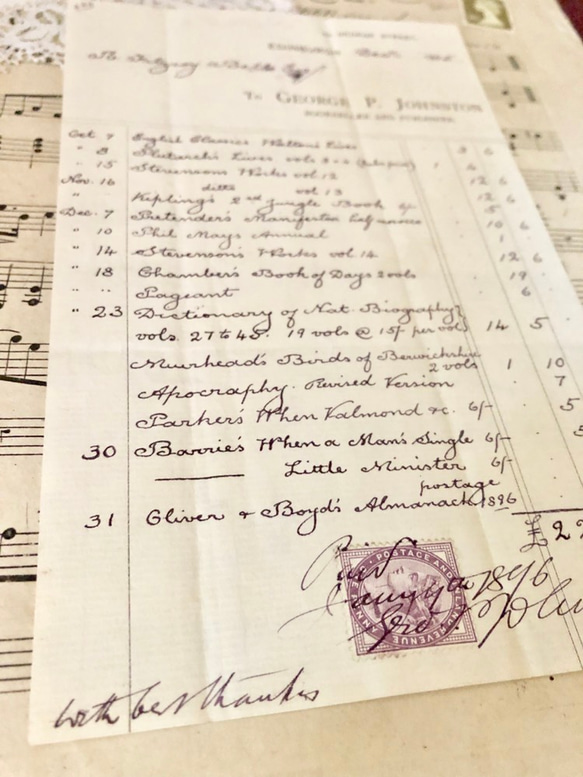 EDINBURGH
To GEORGE P. JOHNSTON
BOOKSELLER AND PUBLISHER
Oct 7 English Classics Walton's Lives 3 6
" 8 Plutarch's Lives vols 1 6
" 15 Stevensons Works vol 12 12 6
Nov. 16 ditto vol 13 12 6
" Kipling's 2nd Jungle Book 6/- 5
Dec. 7 Pretender's Manifestoe half 10 6
" 10 Phil Mays Annual 1
" 14 Stevenson's Works vol 14 12 6
" 18 Chamber's Book of Days 2 vols 19
" " Pageant 6
" 23 Dictionary of Nat. Biography}
vols. 27 to 45. 19 vols @ 15/- per vol} 14 5
Muirhead's Birds of Berwickshire
2 vols 1 10
Apocraphy. Revised Version 7
Parker's When Valmond &c. 6/- 5
30 Barrie's When a Man's Single 6/- 5
Little Minister 6/-
postage
31 Oliver & Boyd's Almanack 1896
£ 22
POSTAGE AND INLAND REVENUE
Paid
1896
Geo. P. John
With best thanks